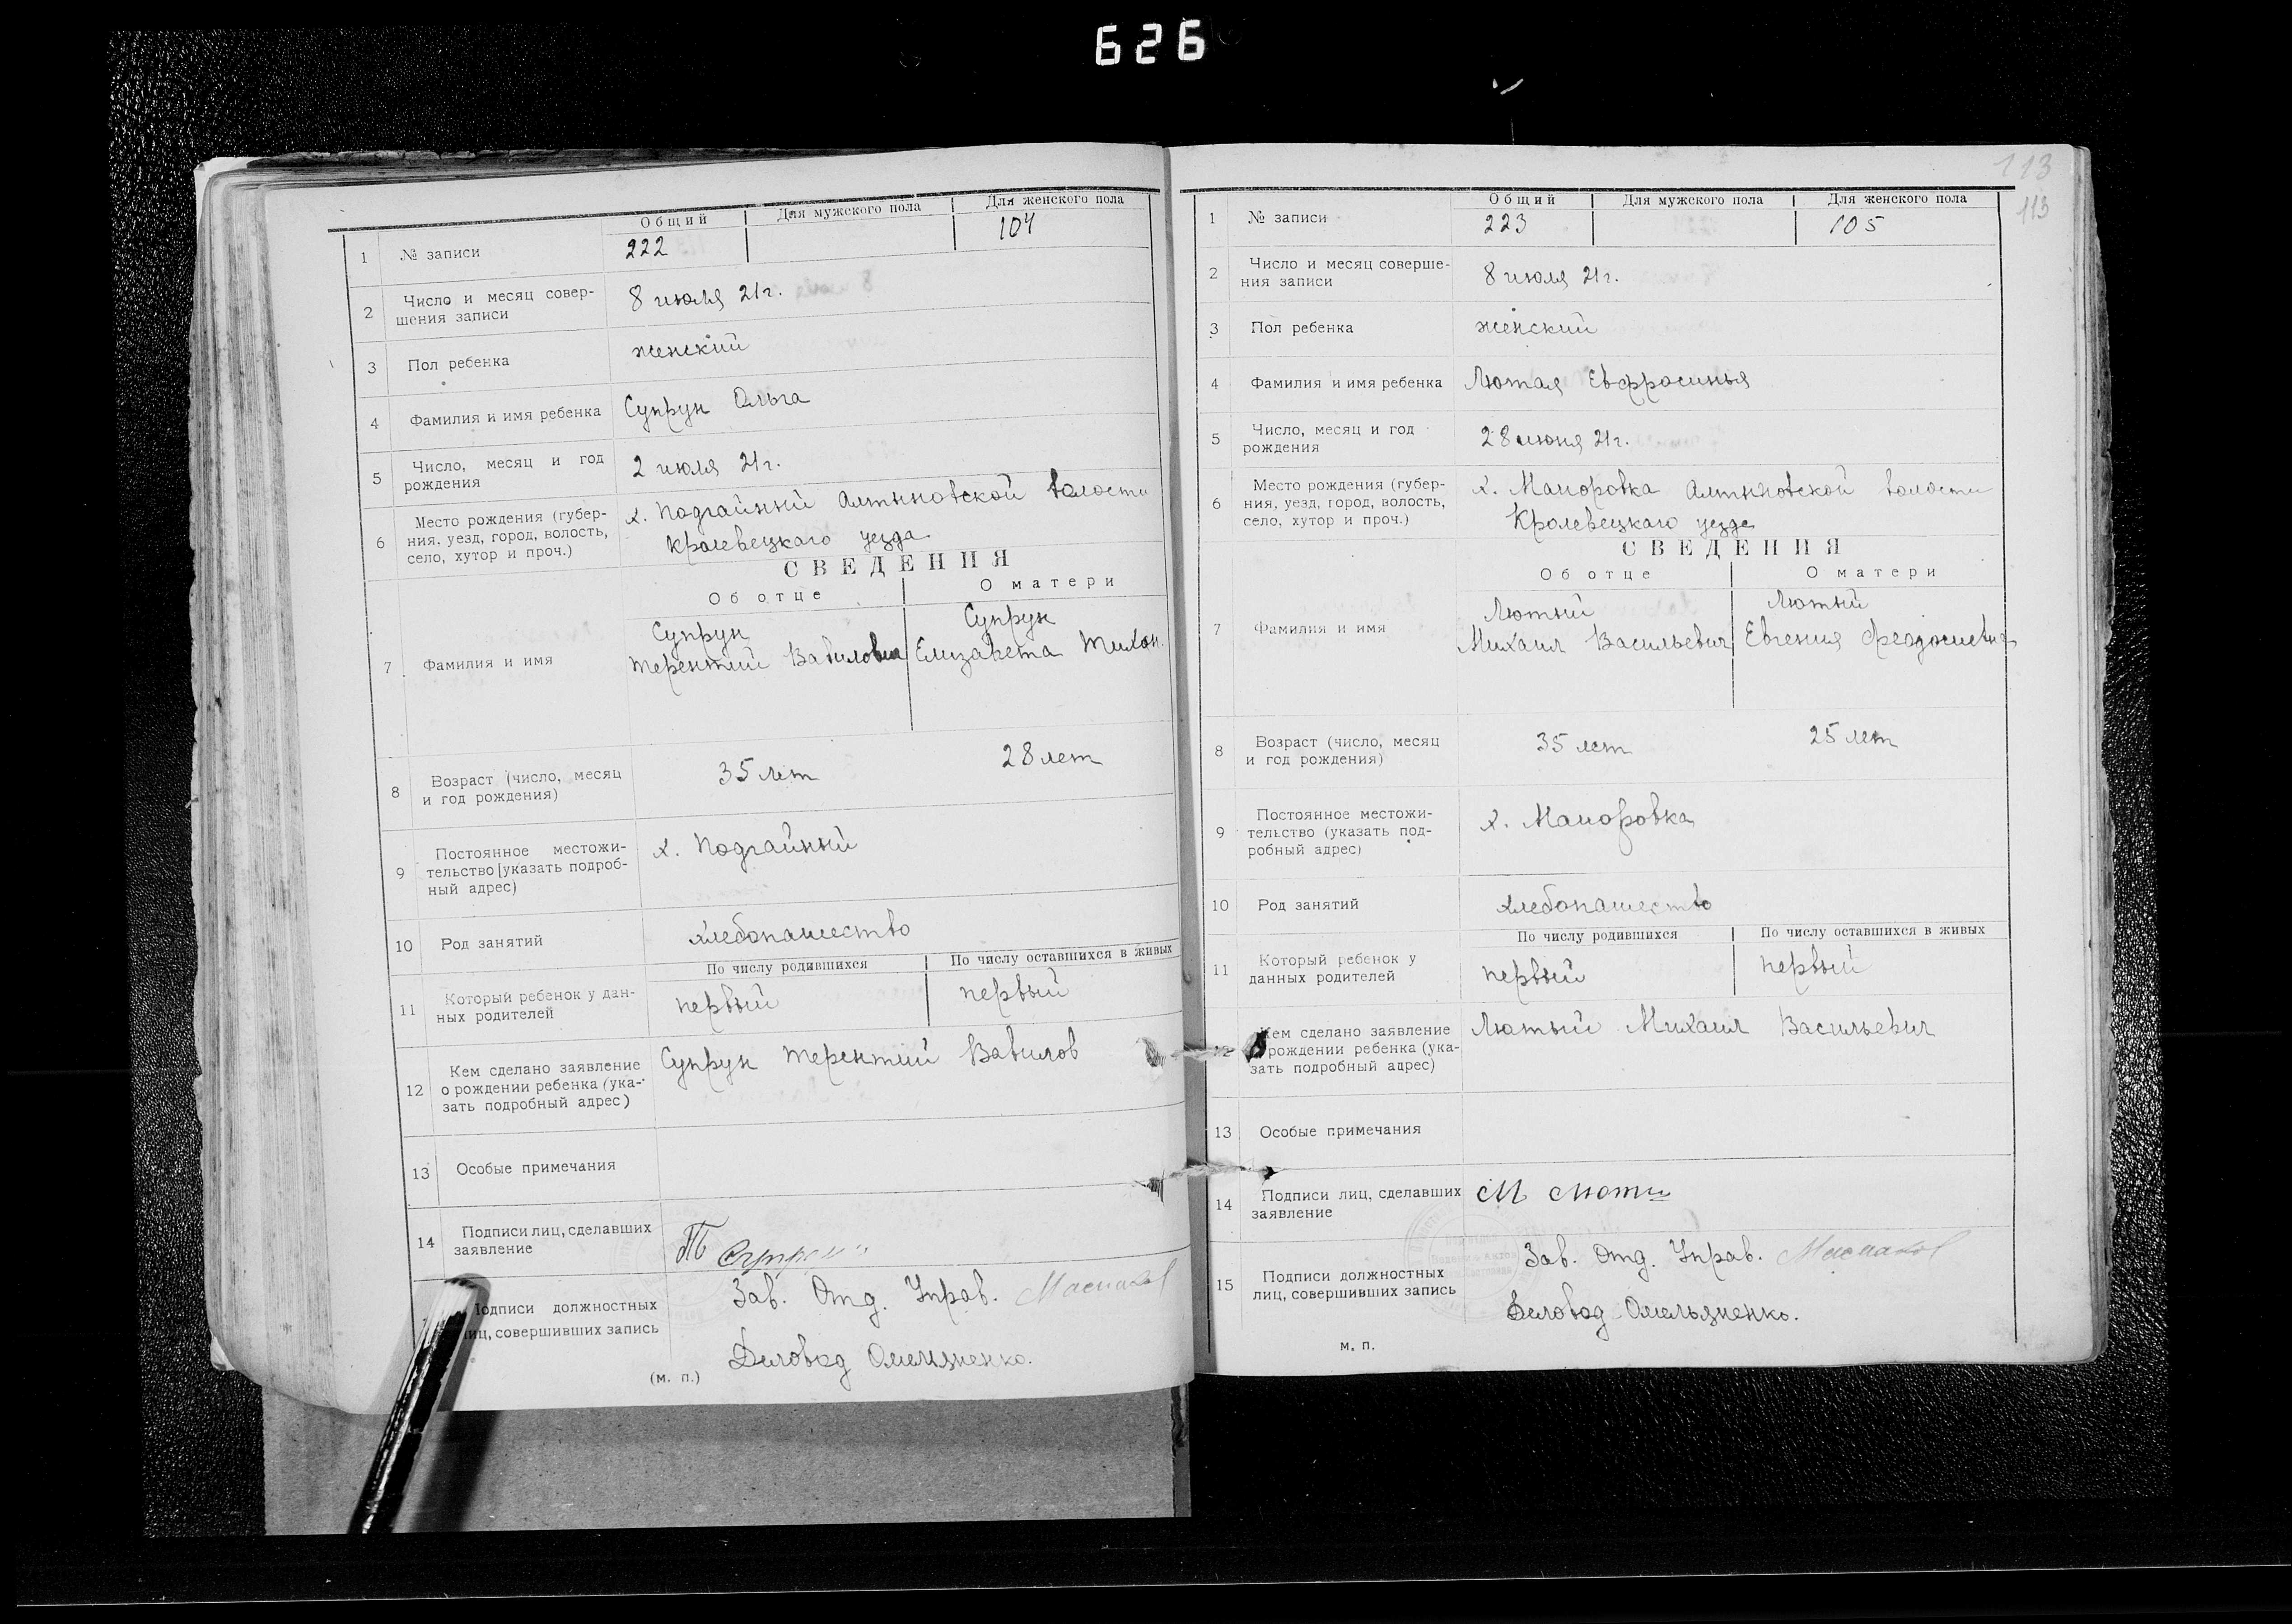 626
Общий Для мужского пола Для женского пола
1 № записи 222 104
2 Число и месяц совер-
шения записи 8 июля 21г.
3 Пол ребенка женский
4 Фамилия и имя ребенка Супрун Ольга
5 Число, месяц и год
рождения 2 июля 21г.
6 Место рождения (губер-
ния, уезд, город, волость,
село, хутор и проч.)
х. Подгайный Алтыновской волости
Кролевецкаго уезда
СВЕДЕНИЯ
Об отце О матери
7 Фамилия и имя
Супрун Супрун
Терентий Вавилович Елизавета Тихон.
8 Возраст (число, месяц
и год рождения) 35 лет 28 лет
9 Постоянное местожи-
тельство [указать подроб-
ный адрес) х. Подгайный
10 Род занятий хлебопашество
По числу родившихся По числу оставшихся в живых
11 Который ребенок у дан-
ных родителей первый первый
12 Кем сделано заявление
о рождении ребенка (ука-
зать подробный адрес)
Супрун Терентий Вавилов
13 Особые примечания
14 Подписи лиц, сделавших
заявление Т Супрун
Подписи должностных
лиц, совершивших запись
Зав. Отд. Управ.
Деловод Омельяненко.
(м. п.)
113
113
Общий Для мужского пола Для женского пола
1 № записи 223 105
2 Число и месяц соверше-
ния записи 8 июля 21г.
3 Пол ребенка женский
4 Фамилия и имя ребенка Лютая Евфросинья
5 Число, месяц и год
рождения 28 июня 21г.
6 Место рождения (губер-
ния, уезд, город, волость,
село, хутор и проч.)
х. Маиоровка Алтыновской волости
Кролевецкаго уезда
СВЕДЕНИЯ
Об отце О матери
7 Фамилия и имя
Лютый Лютый
Михаил Васильевич Евгения
8 Возраст (число, месяц
и год рождения) 35 лет 25 лет
9 Постоянное местожи-
тельство (указать под-
робный адрес) х. Маиоровка
10 Род занятий хлебопашество
По числу родившихся По числу оставшихся в живых
11 Который ребенок у
данных родителей первый первый
12 Кем сделано заявление
рождении ребенка (ука-
зать подробный адрес)
Лютый Михаил Васильевич
13 Особые примечания
14 Подписи лиц, сделавших
заявление М
15 Подписи должностных
лиц, совершивших запись
Зав. Отд. Управ.
Деловод Омельяненко.
м. п.